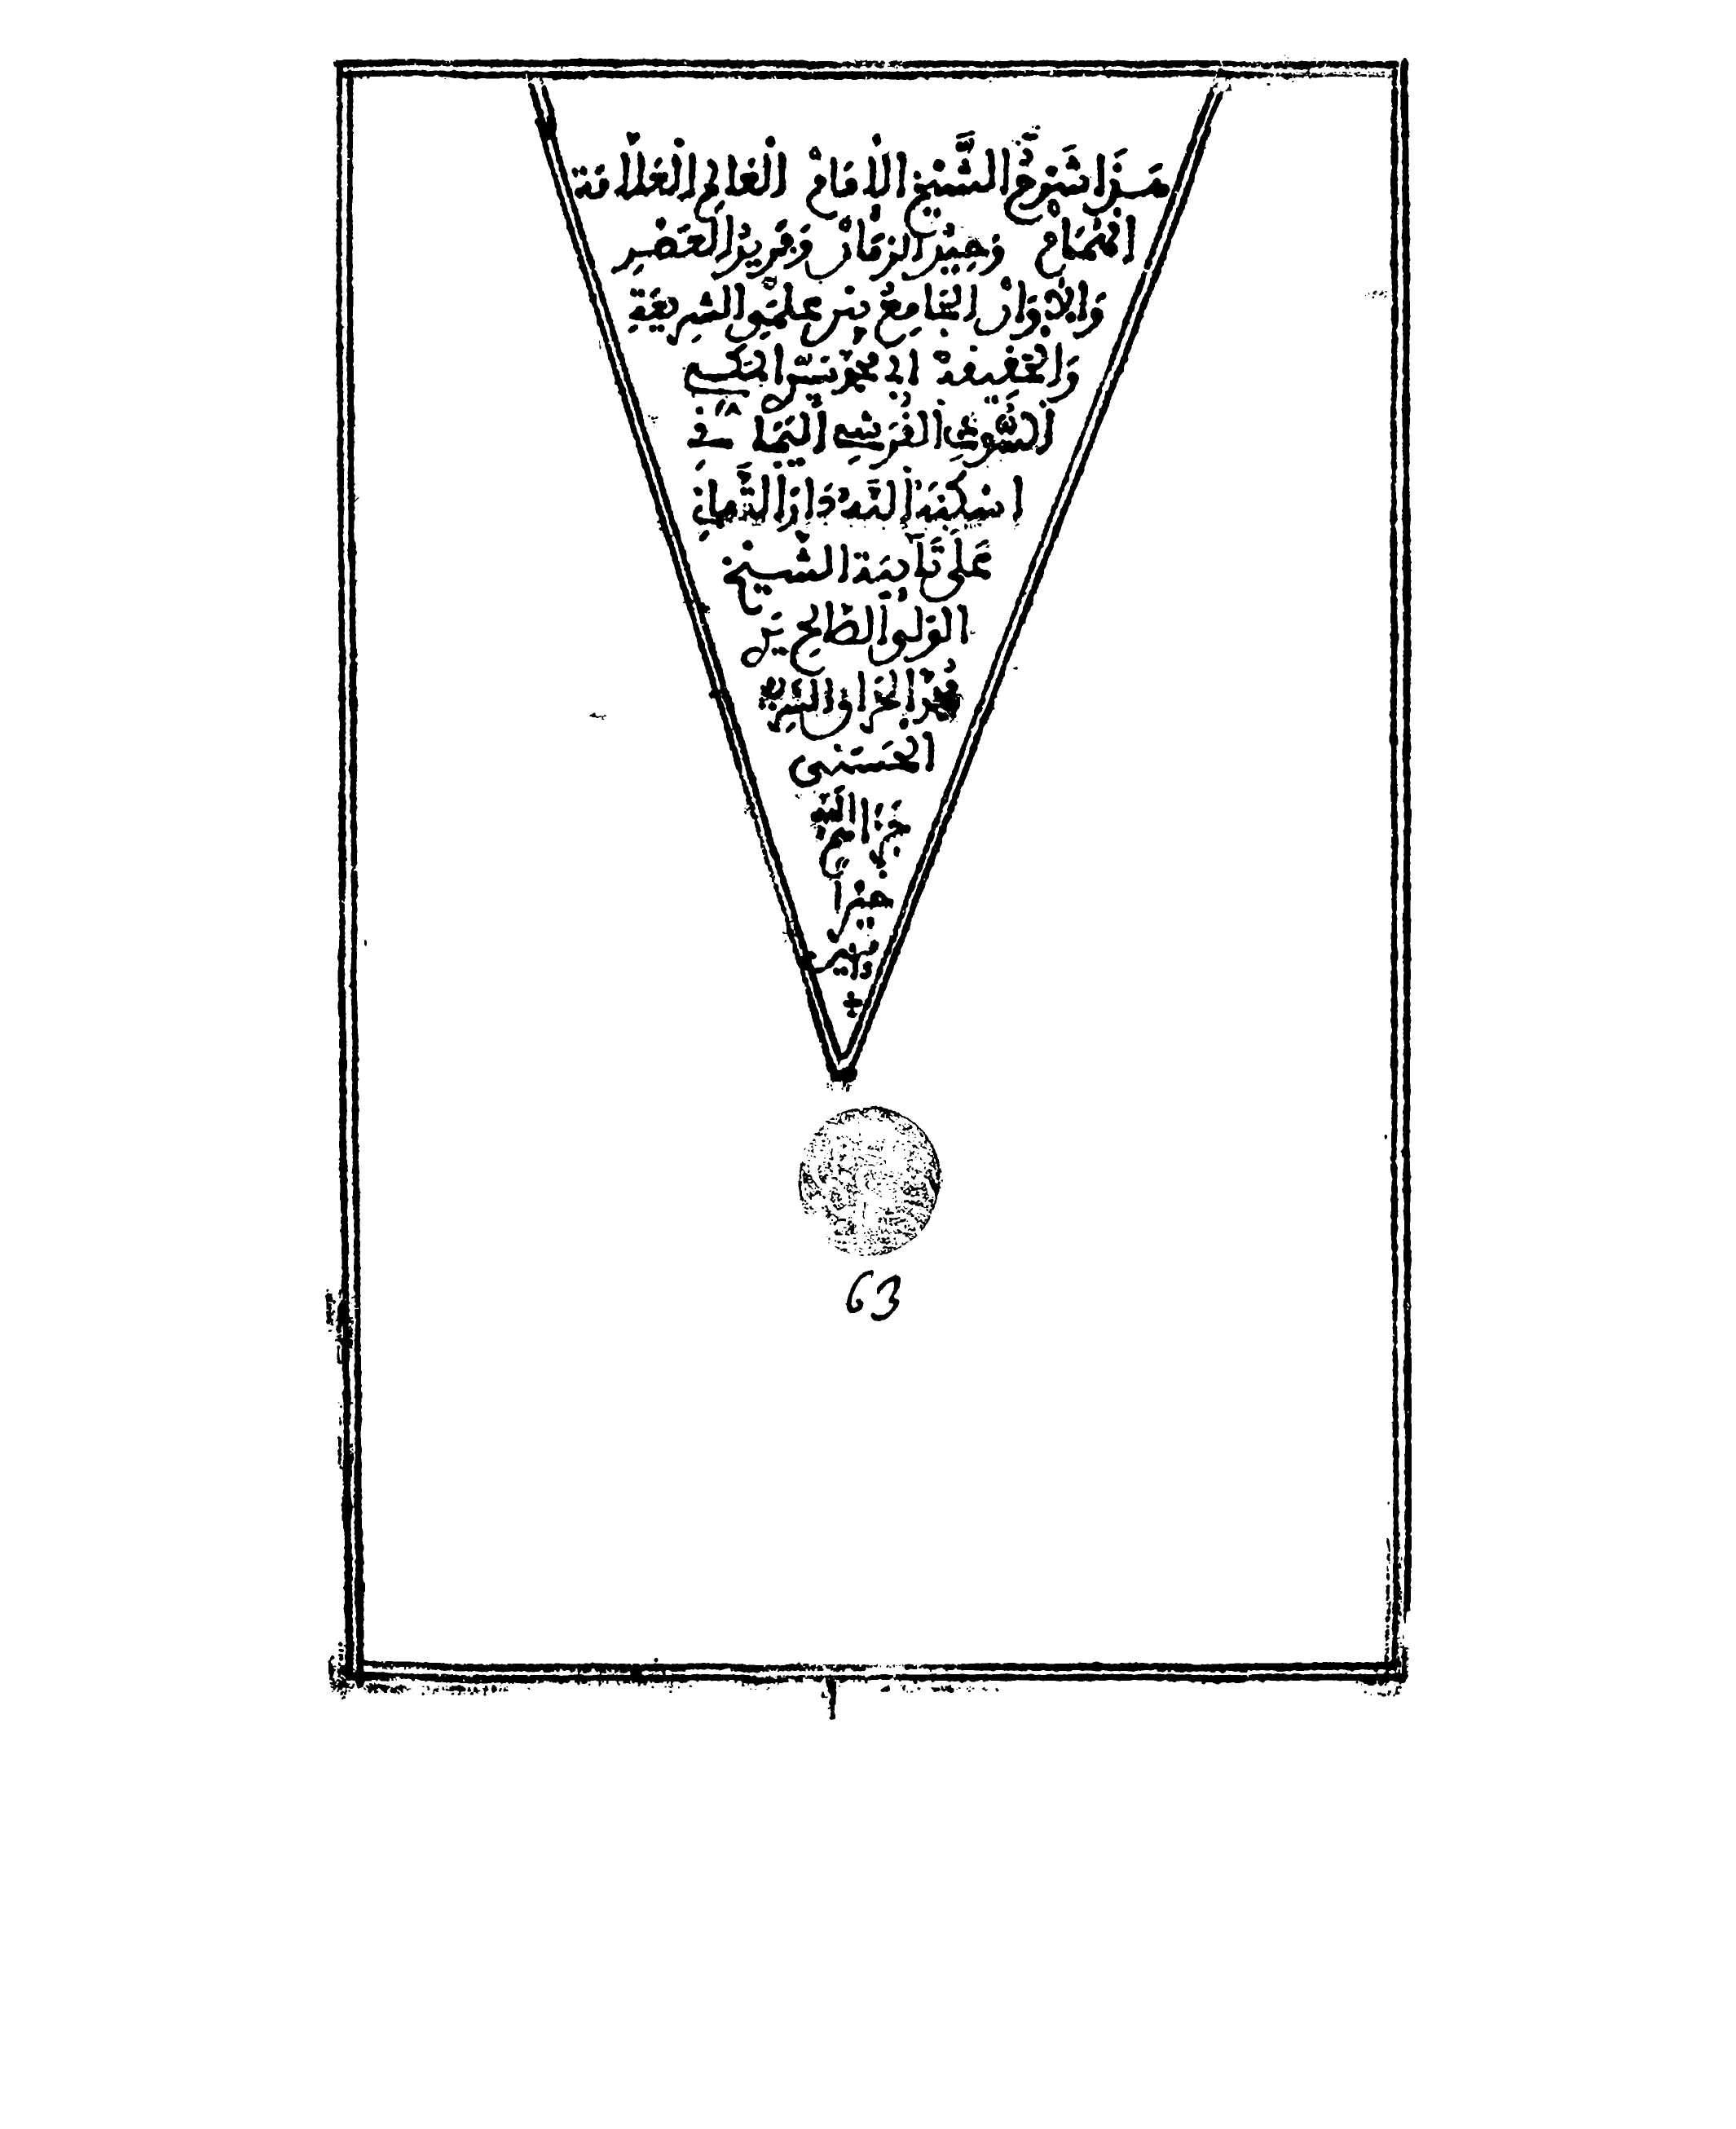 هَذَا شَرْحُ الشَّيْخِ الْإِمَامْ الْعَالِمِ الْعَلَّامَة
الْهُمَامْ وَحِيدُ الزمَانْ وَفَرِيدُ الْعَصْرِ
وَالْاوَانْ الْجَامِعُ بين علمي الشرِيعَةِ
وَالحَقِيقَة ابي محمد
القُرَشي
اسْكَنَهُ اللَّهُ دَارَ التَّهَانِي
عَلَى تَآيِيَة الشَّيخ
الوَلي الصَّالح
محمد الحَرَاق الشَّرِيف
الحَسَني
جَزَاهُمُ اللَّه
خَيْراً
ءامين
63